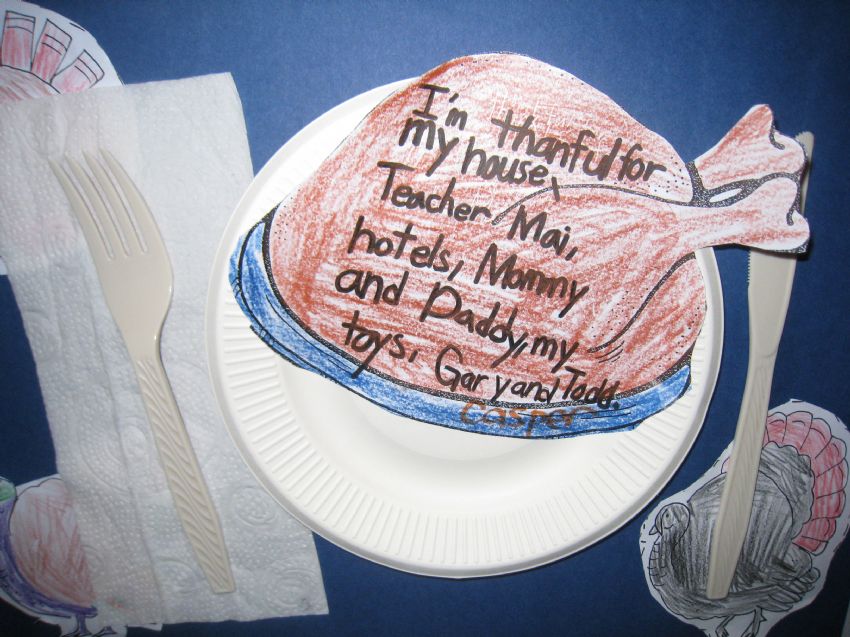 I'm thanful for
my house,
Teacher Mai,
hotels, Mommy
and Daddy, my
toys, Gary and Todd.
Casper